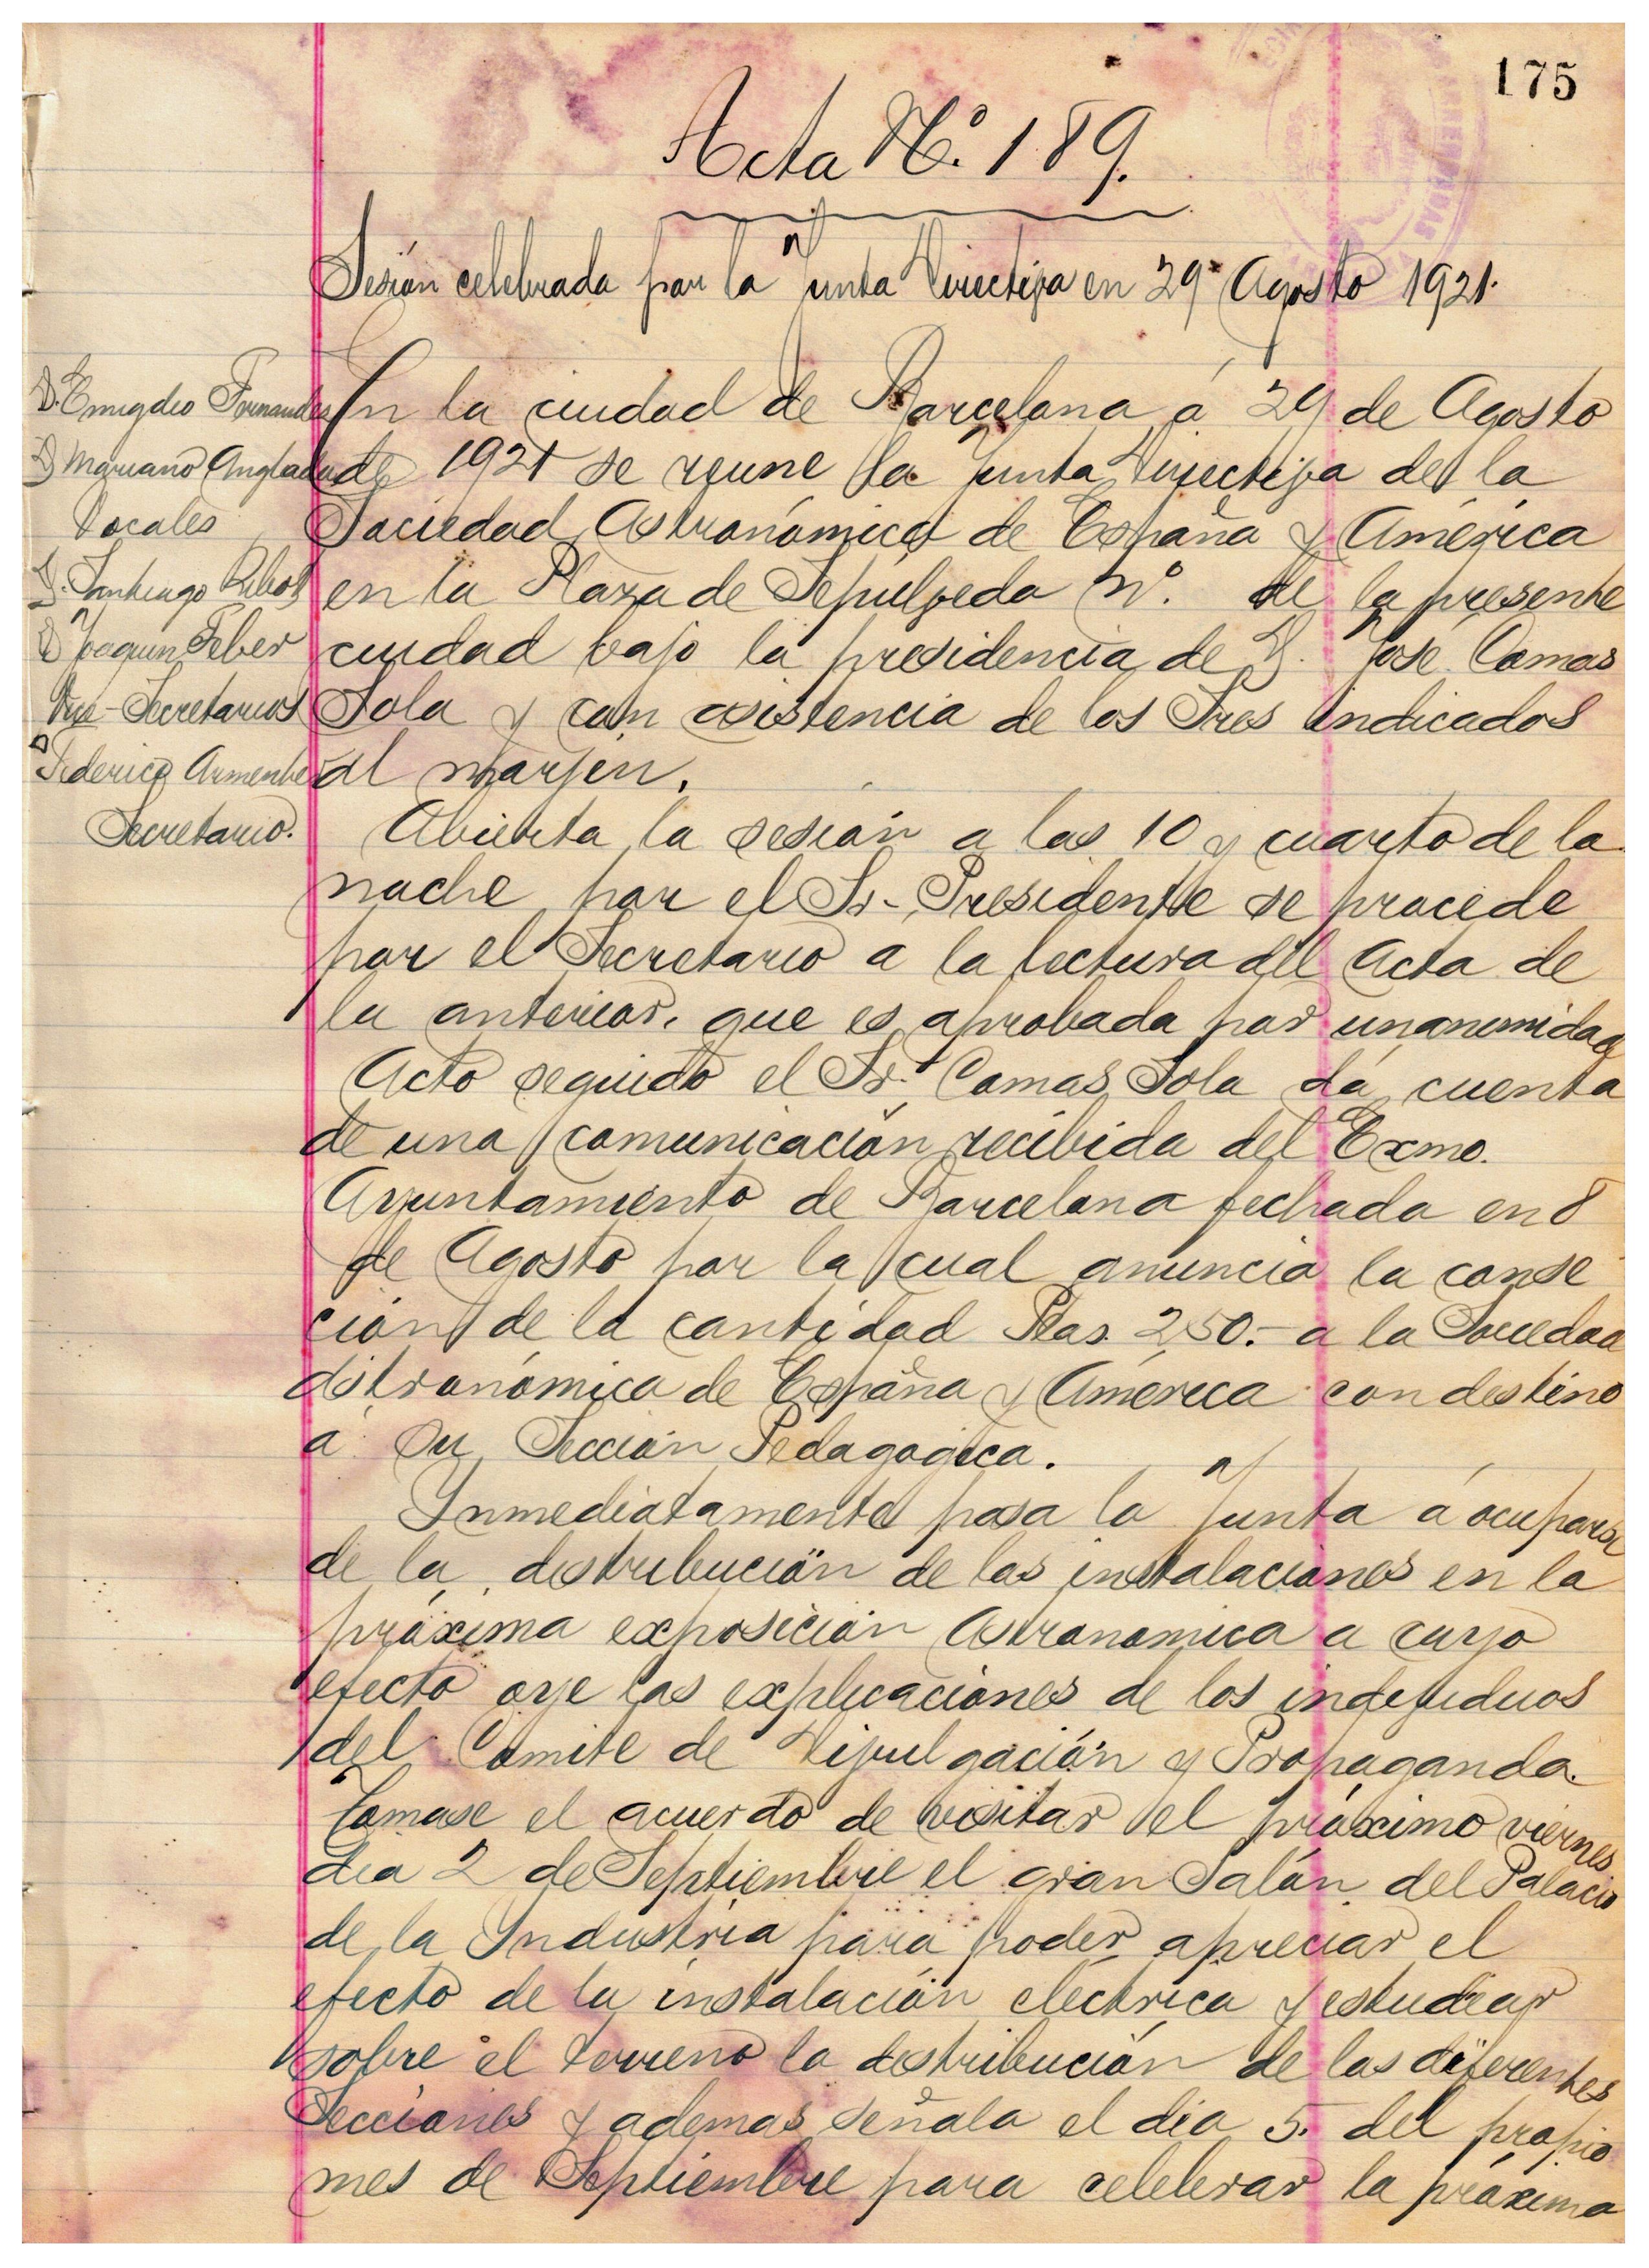 175
Acta Nº. 189.
Sesión celebrada por la Junta Directiva en 29 Agosto 1921.
D. Emigdio Fernandes
D Mariano Anglada
Vocales
D. Santiago Ribot
D Joaquin Feber
Vice-Secretarios
D Federico Armenter
Secretario.
En la ciudad de Barcelona á 29 de Agosto
de 1921 se reune la Junta Directiva de la
Sociedad Astronómica de España y América
en la Plaza de Sepúlveda Nº. de la presente
ciudad bajo la presidencia de D. José Comas
Sola y con asistencia de los Sres indicados
al marjen.
Abierta la sesión a las 10 y cuarto de la
noche por el Sr. Presidente se procede
por el Secretario a la lectura del Acta de
la anterior, que es aprobada por unanimidad
Acto seguido el Sr. Comas Sola dá cuenta
de una comunicación recibida del Exmo.
Ayuntamiento de Barcelona fechada en 8
de Agosto por la cual anuncia la conse
ción de la cantidad Ptas. 250.- a la Sociedad
Astronómica de España y América con destino
a su Sección Pedagogica.
Inmediatamente pasa la Junta á ocuparse
de la distribución de las instalaciones en la
próxima exposición Astronomica a cuyo
efecto oye las explicaciones de los individuos
del Comite de Divulgación y Propaganda.
Tomase el acuerdo de visitar el próximo viernes
dia 2 de Septiembre el gran Salón del Palacio
de la Industria para poder apreciar el
efecto de la instalación eléctrica y estudiar
sobre el terreno la distribución de las diferentes
Secciones y ademas señala el dia 5. del propio
mes de Septiembre para celebrar la próxima